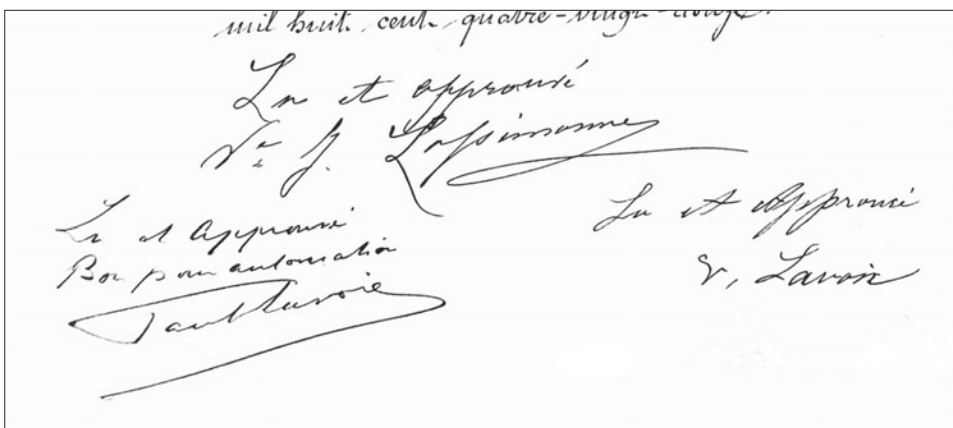 mil huit cent quatre-vingt-douze.
Lu et approuvé
Vve J. Lassimonne
Lu et Approuvé
Bon pour autorisation
Paul Lavoie
Lu et Approuvé
V. Lavoie